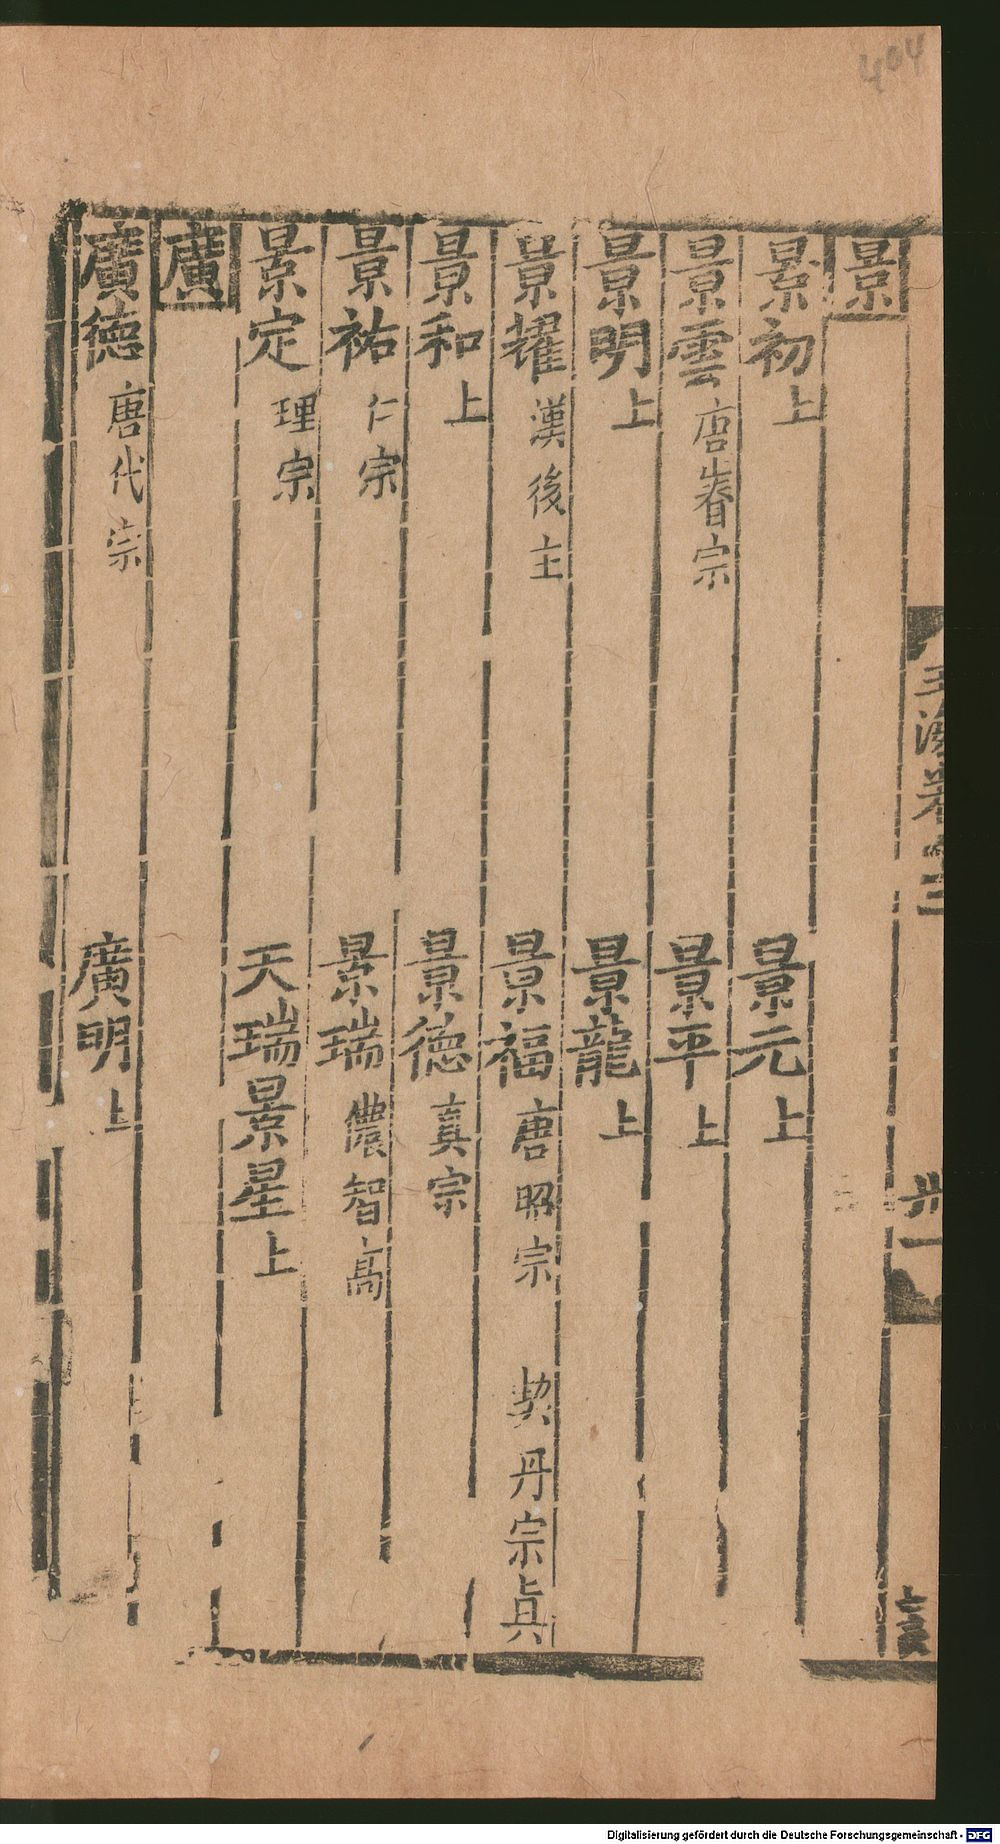 404
景
景初上 景元上
景雲唐睿宗 景平上
景明上 景龍上
景耀漢後主 景福唐昭宗 契丹宗眞
景和上 景德真宗
景祐仁宗 景瑞儂智高
景定理宗 天瑞景星上
廣
廣德唐代宗 廣明上
玉海卷
卅一
Digitalisierung gefördert durch die Deutsche Forschungsgemeinschaft - DFG